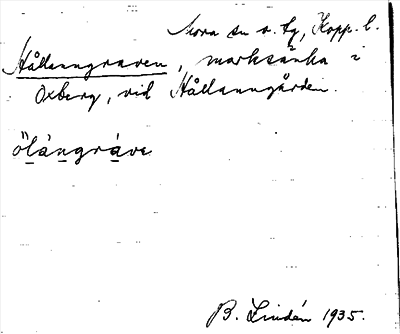 Mora sn o. tg, Kopp. l.
Hållanngraven, marksänka i
Oxberg, vid Hållanngården.
ölàngráve
B. Lindén 1935.